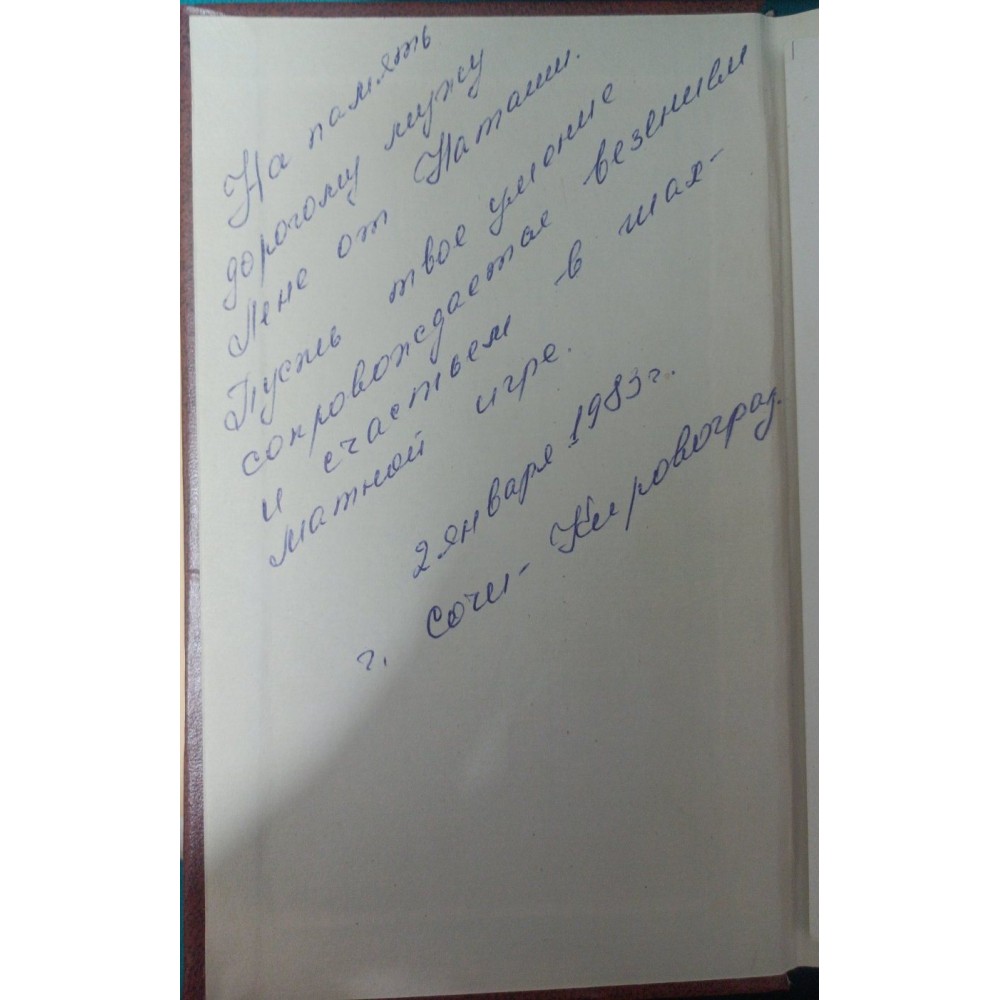 На память
дорогому мужу
Лене от Наташи.
Пусть твое умение
сопровождается везением
и счастьем в шах-
матной игре.
2 января 1983 г.
г. Сочи - Кировоград.